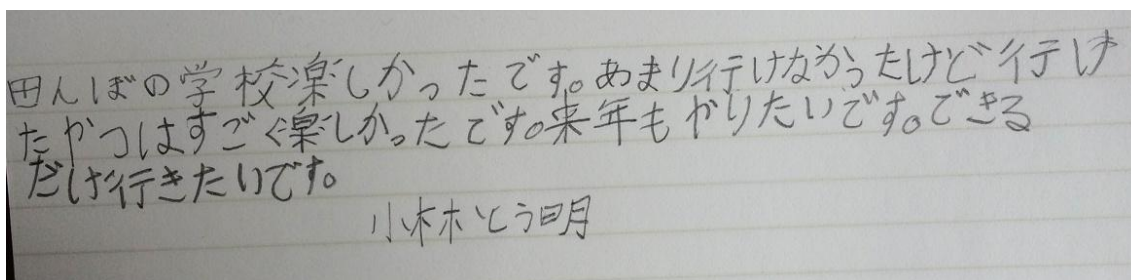 田んぼの学校楽しかったです。あまり行けなかったけど行け
たやつはすごく楽しかったです。来年もやりたいです。できる
だけ行きたいです。
小林とう明